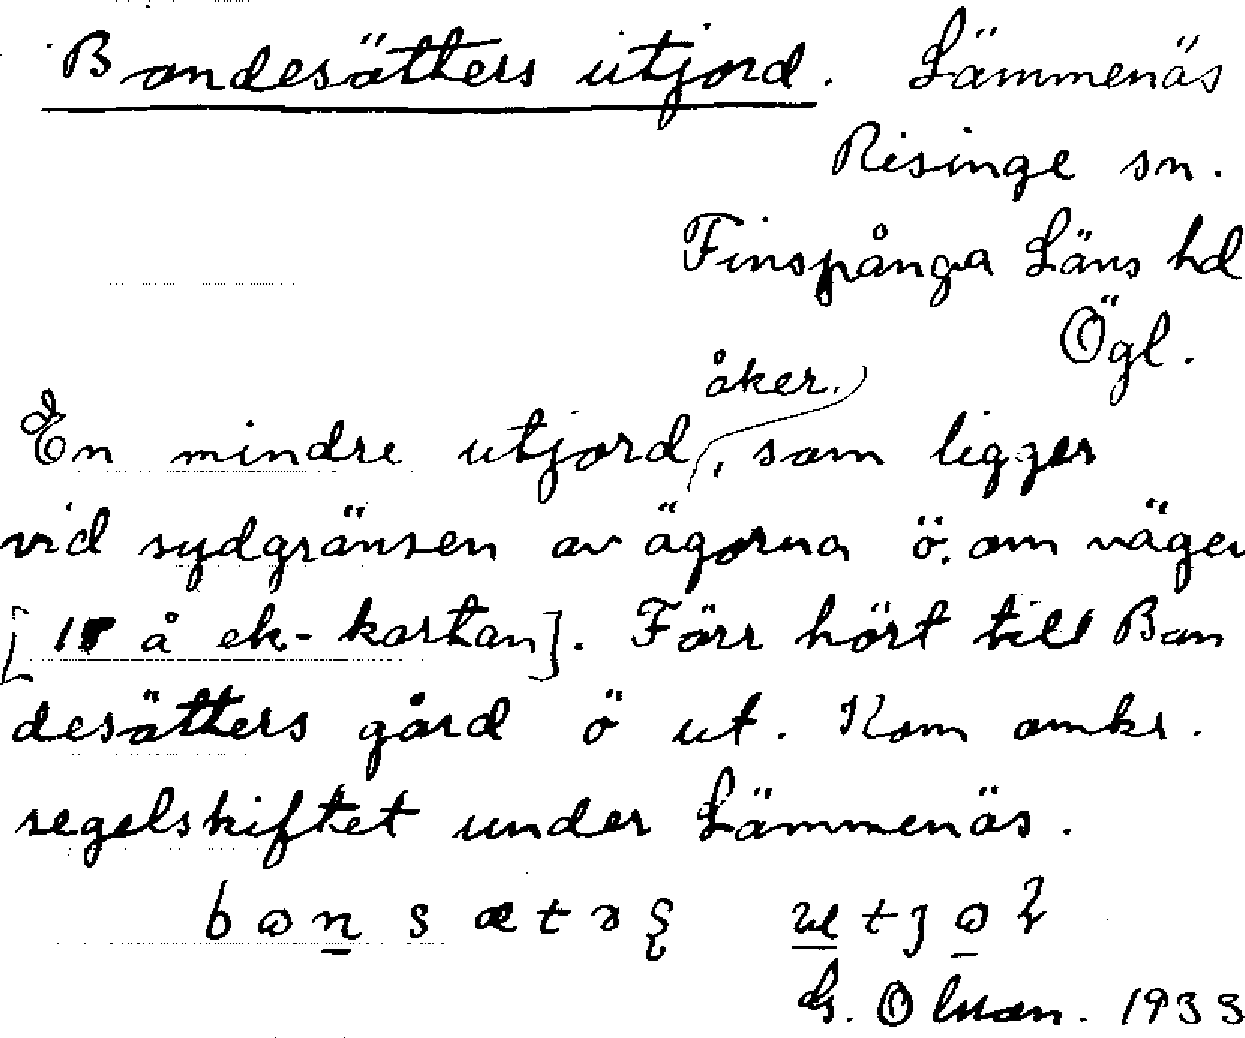 Bandesätters utjord. Lämmenäs
Risinge sn.
Finspånga Läns hd
Ögl.
åker.
En mindre utjord, som ligger
vid sydgränsen av ägorna ö. om vägen
[1 å ek-kartan]. Förr hört till Ban
desätters gård ö ut. Kom omkr.
segelskiftet under Lämmenäs.
G. Olsson. 1933